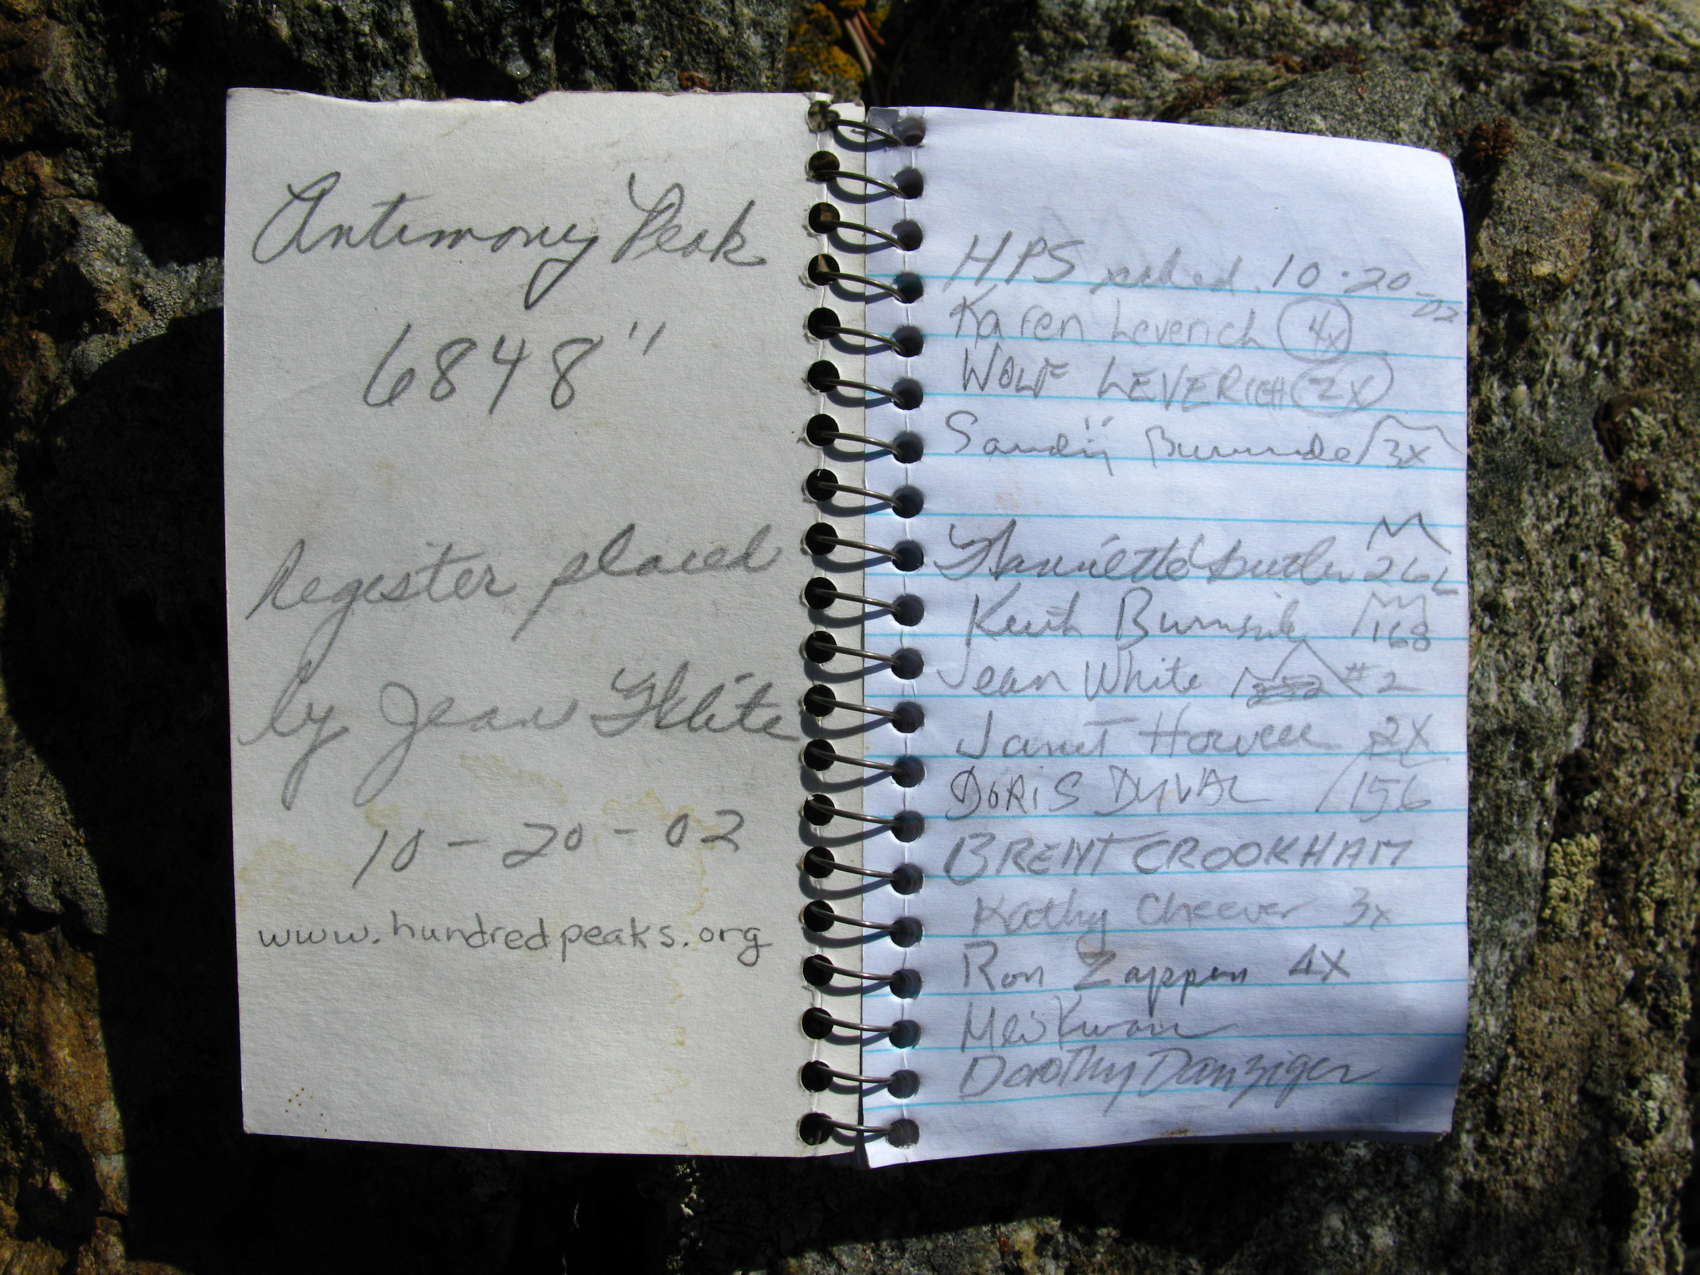 Antimony Peak
6848"
Register placed
by Jean White
10-20-02
www.hundredpeaks.org
HPS 10-20-02
Karen Leverich 4x
WOLF LEVERICH 2X
Sandy Burnside 3x
Harriette Butler
Keith Burnside 168
Jean White #2
Janet Howell 2X
DORIS DUVAL 156
BRENT CROOKHAM
Kathy Cheever 3x
Ron Zappen 4X
Mei Kwan
Dorothy Danziger